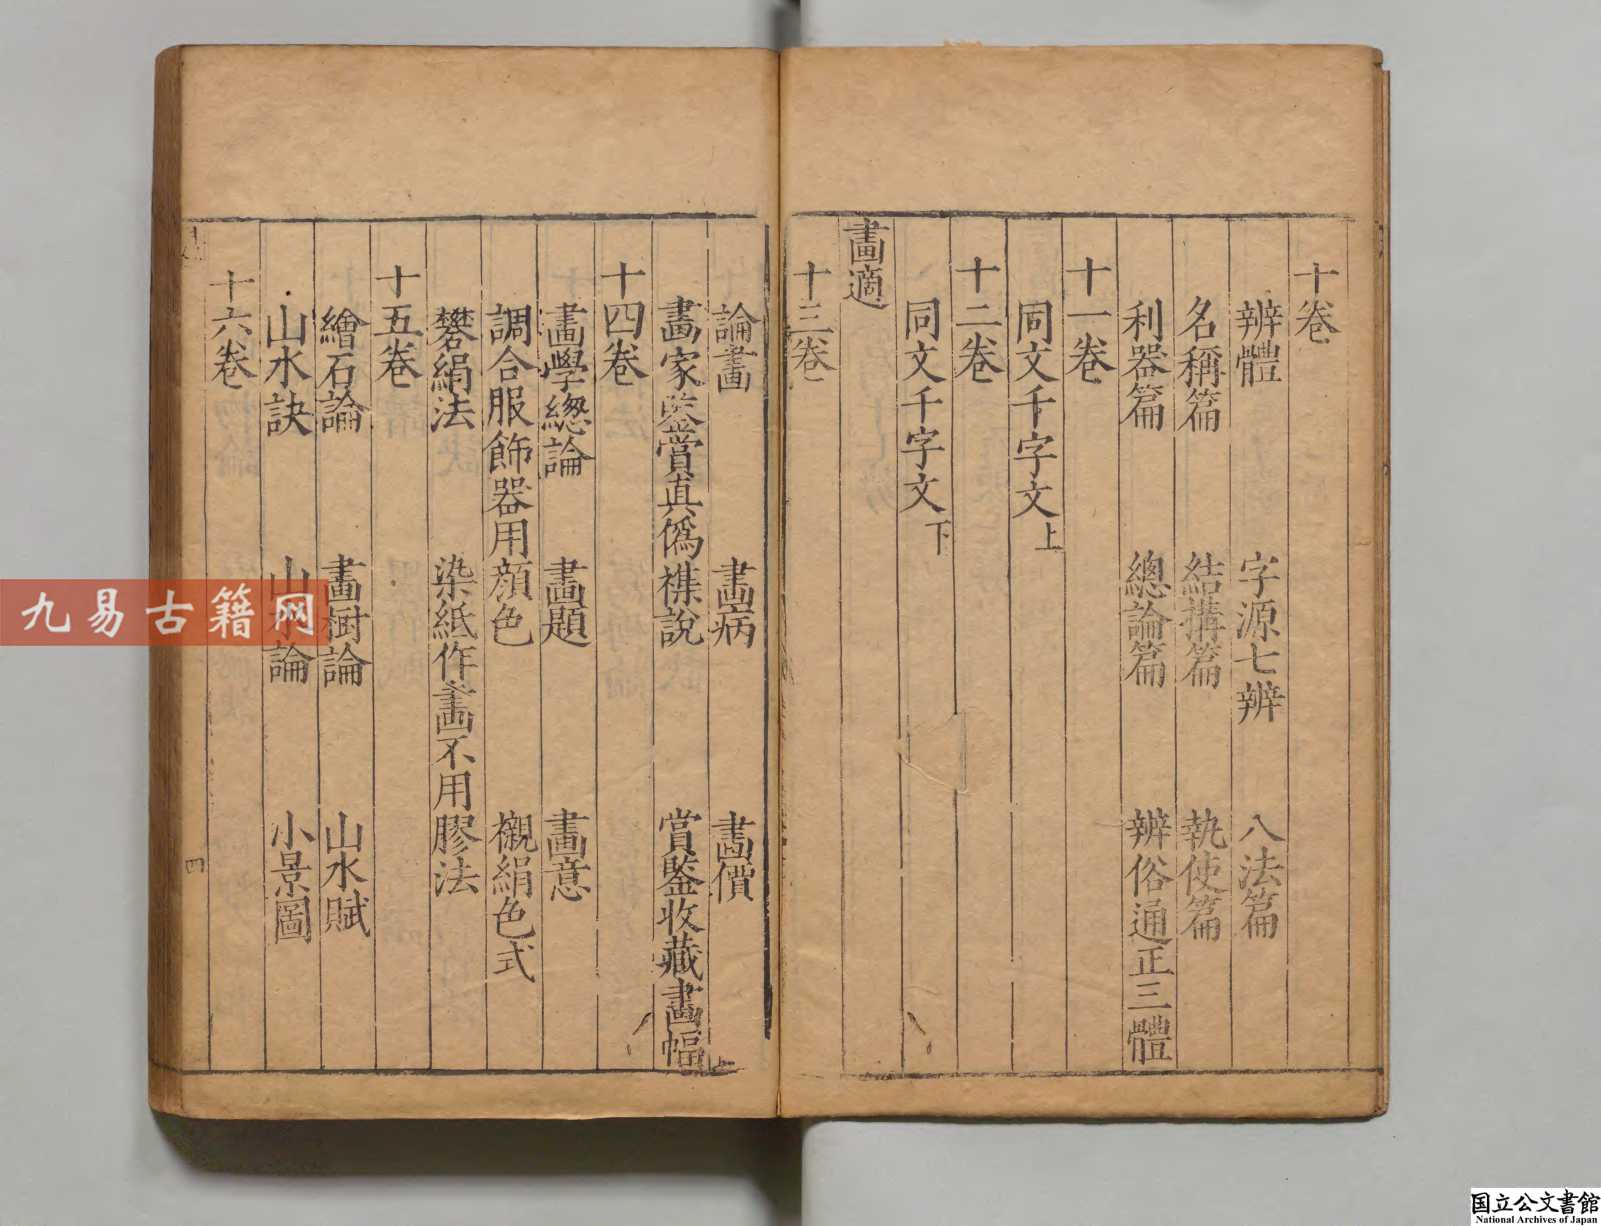 十卷
辨體 字源七辨 八法篇
名稱篇 結搆篇 執使篇
利器篇 總論篇 辨俗通正三體
十一卷
同文千字文上
十二卷
同文千字文下
畫適
十三卷
論畫 畫病 畫價
畫家鑒賞真僞襍說 賞鑒收藏畫幅
十四卷
畫學緫論 畫題 畫意
調合服飾器用顏色 襯絹色式
礬絹法 染紙作畫不用膠法
十五卷
繪石論 畫樹論 山水賦
山水訣 山水論 小景圖
十六卷
四
九易古籍网
国立公文書館
National Archives of Japan